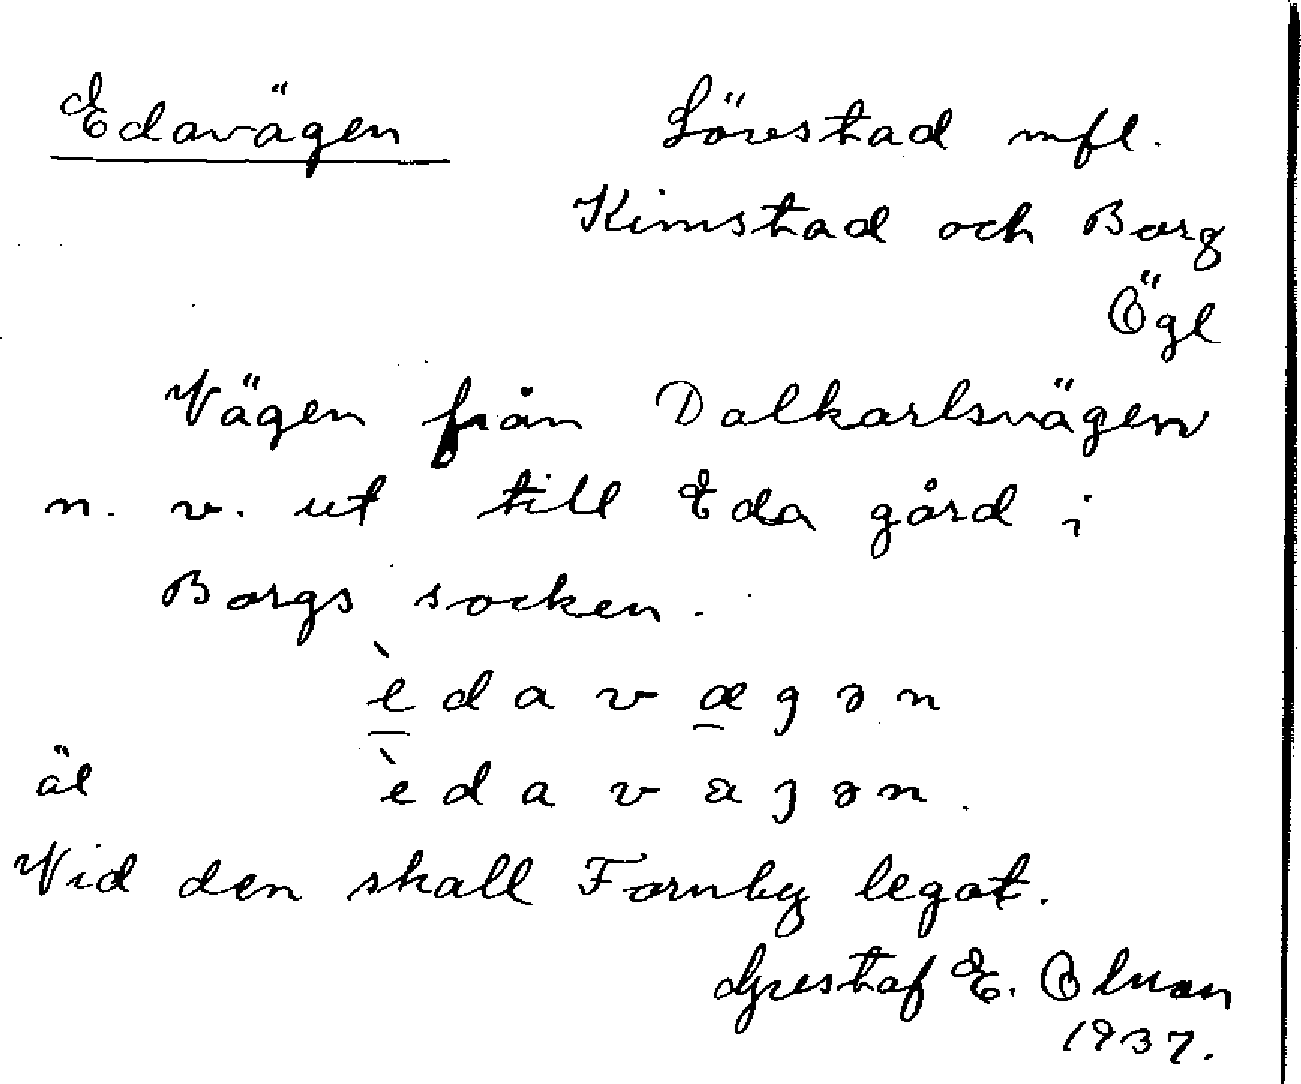 Edavägen Lörestad mfl.
Kimstad och Borg
Ögl
Vägen från Dalkarlsvägen
n. v. ut till Eda gård i
Borgs socken.
èdavægən
äl èdavagən.
Vid den skall Fornby legat.
Gustaf E. Olman
1937.